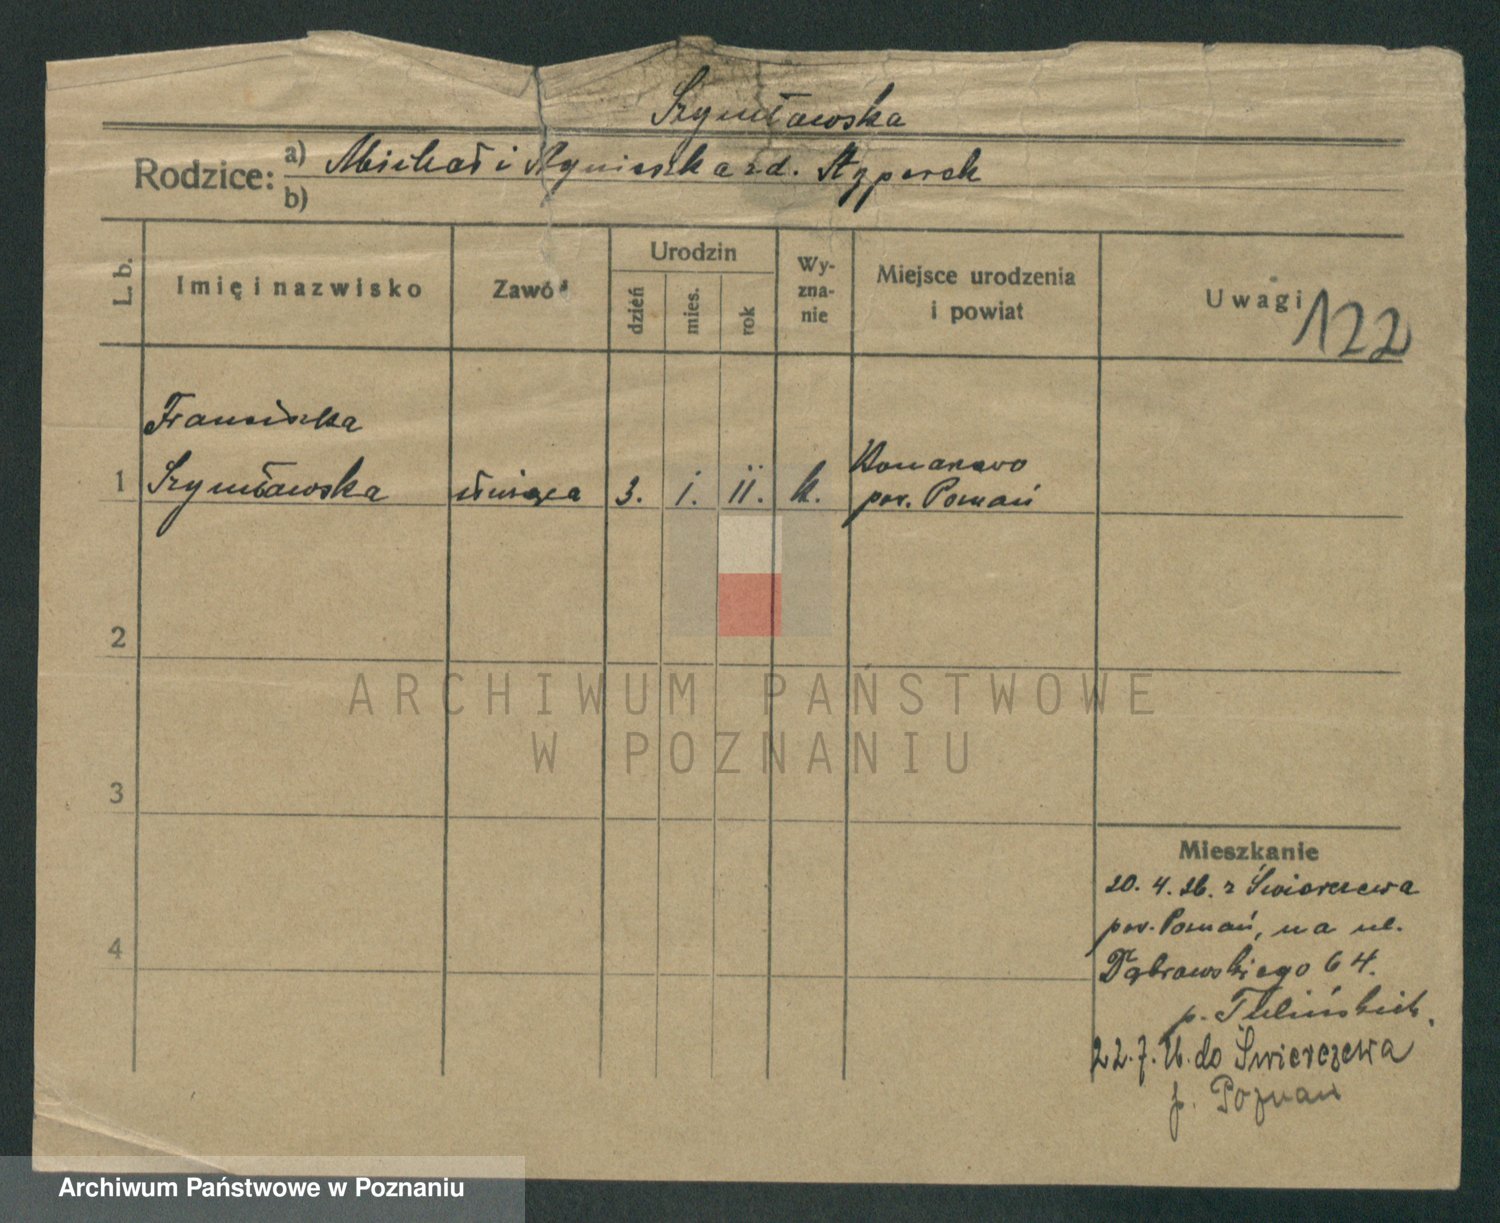 Szymławska
Rodzice: a) Michał i Agnieszka zd. Szperek
b)
L. b. Imię i nazwisko Zawód Urodzin dzień mies. rok Wyznanie Miejsce urodzenia i powiat Uwagi 122
Franciszka
1 Szymławska służąca 3. i. ii. k. Komarowo
pow. Poznań
2
3
4
Mieszkanie
20. 4. 26. z Świerczewa
pow. Poznań, na ul.
Dąbrowskiego 64.
p. Tulińskich.
22. 7. 26. do Świerczewa
p. Poznań
ARCHIWUM PAŃSTWOWE
W POZNANIU
Archiwum Państwowe w Poznaniu